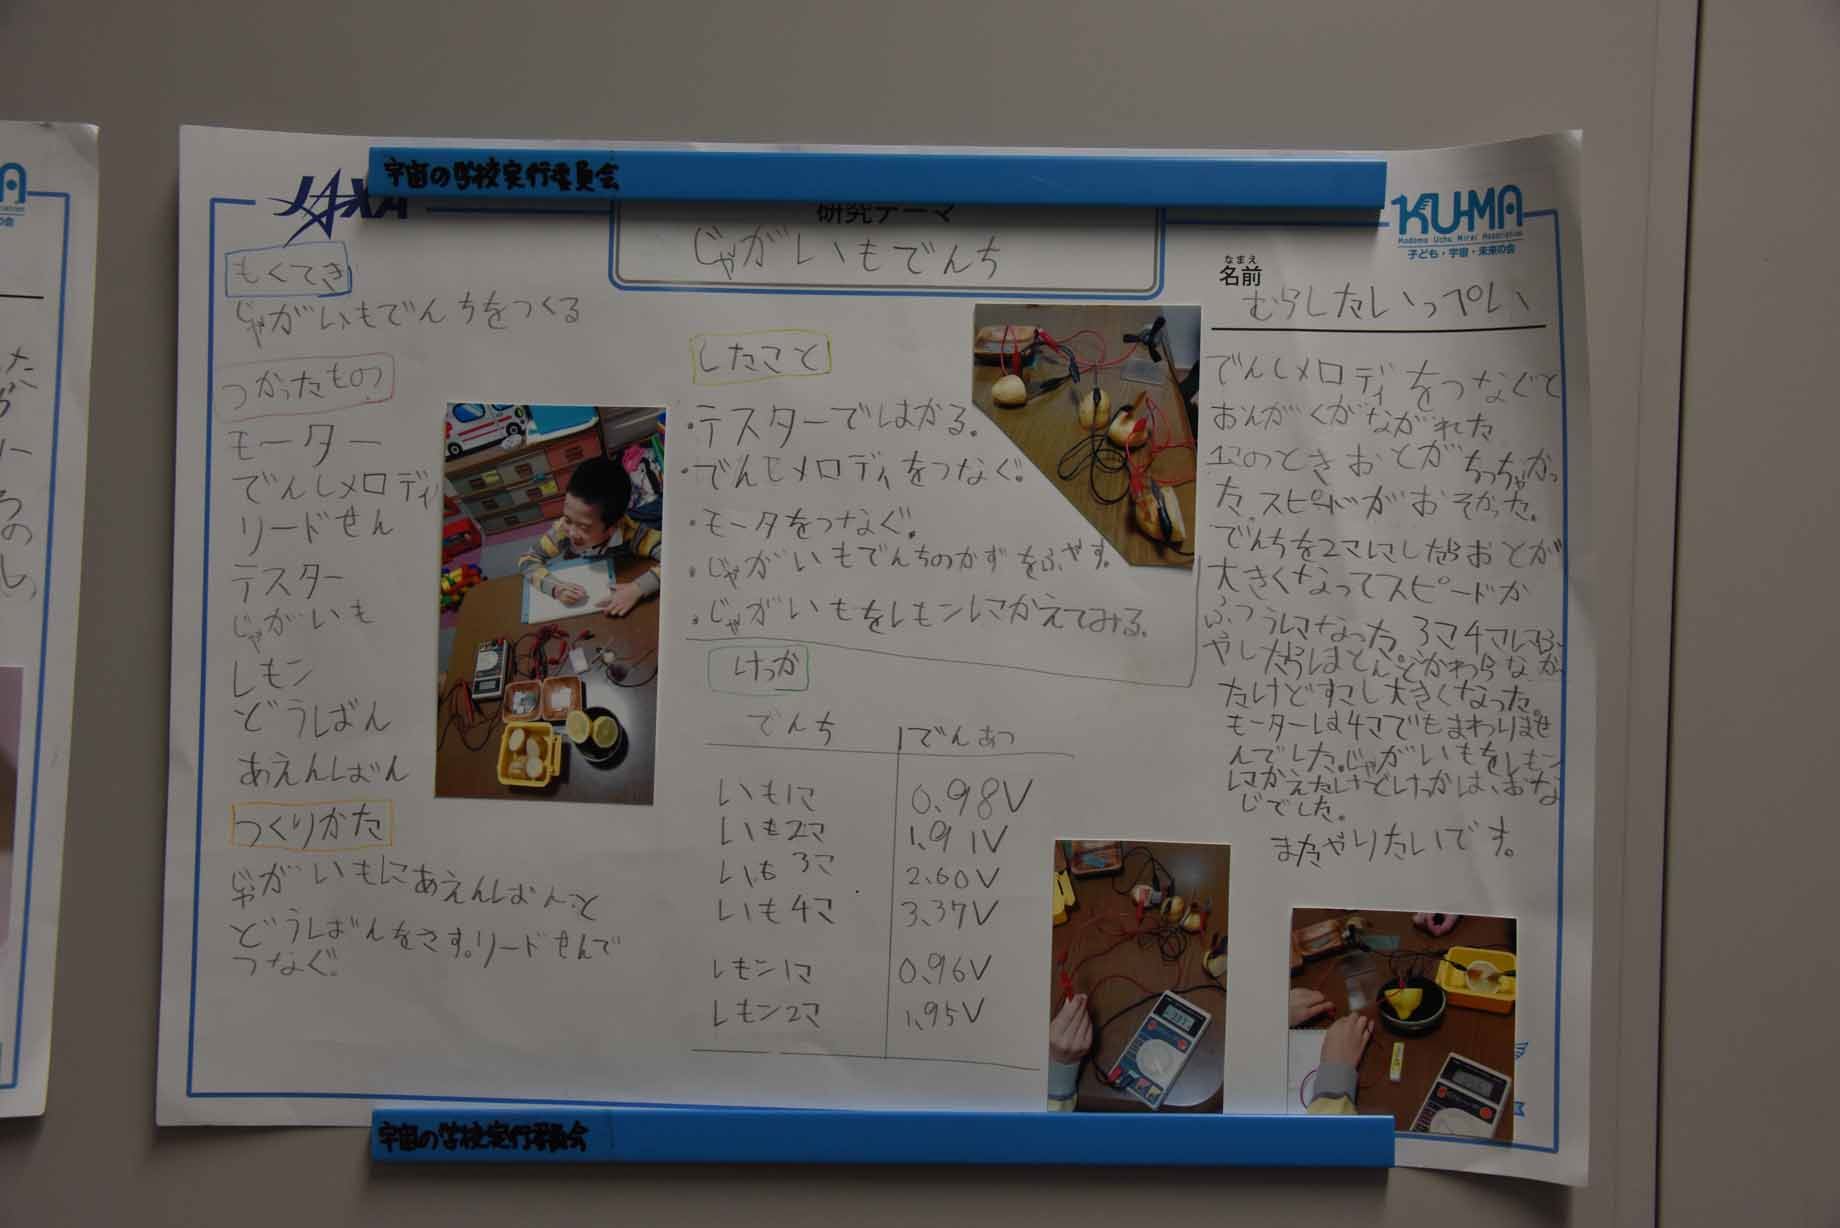 宇宙の学校実行委員会
JAXA
研究テーマ
じゃがいもでんち
KU-MA
Kodomo Uchu Mirai Association
子ども・宇宙・未来の会
なまえ
名前
むらしたいっぺい
もくてき
じゃがいもでんちをつくる
つかったもの
モーター
でんしメロディ
リードせん
テスター
じゃがいも
レモン
どうばん
あえんばん
つくりかた
じゃがいもにあえんばんと
どうばんをさす。リードせんで
つなぐ。
したこと
・テスターではかる。
・でんしメロディをつなぐ。
・モータをつなぐ。
・じゃがいもでんちのかずをふやす。
・じゃがいもをレモンにかえてみる。
けっか
でんち でんあつ
いも1こ 0.98V
いも2こ 1.91V
いも3こ 2.60V
いも4こ 3.37V
レモン1こ 0.96V
レモン2こ 1.95V
でんしメロディをつなぐと
おんがくがながれた
1このときおとがちっちゃかっ
た。スピードがおそかった。
でんちを2こにしたらおとが
大きくなってスピードか
ふつうになった。3こ4こにふ
やしたらほとんどかわらなかっ
たけどすこし大きくなった。
モーターは4こでもまわりませ
んでした。じゃがいもをレモン
にかえたけどけっかは、おな
じでした。
またやりたいです。
宇宙の学校実行委員会